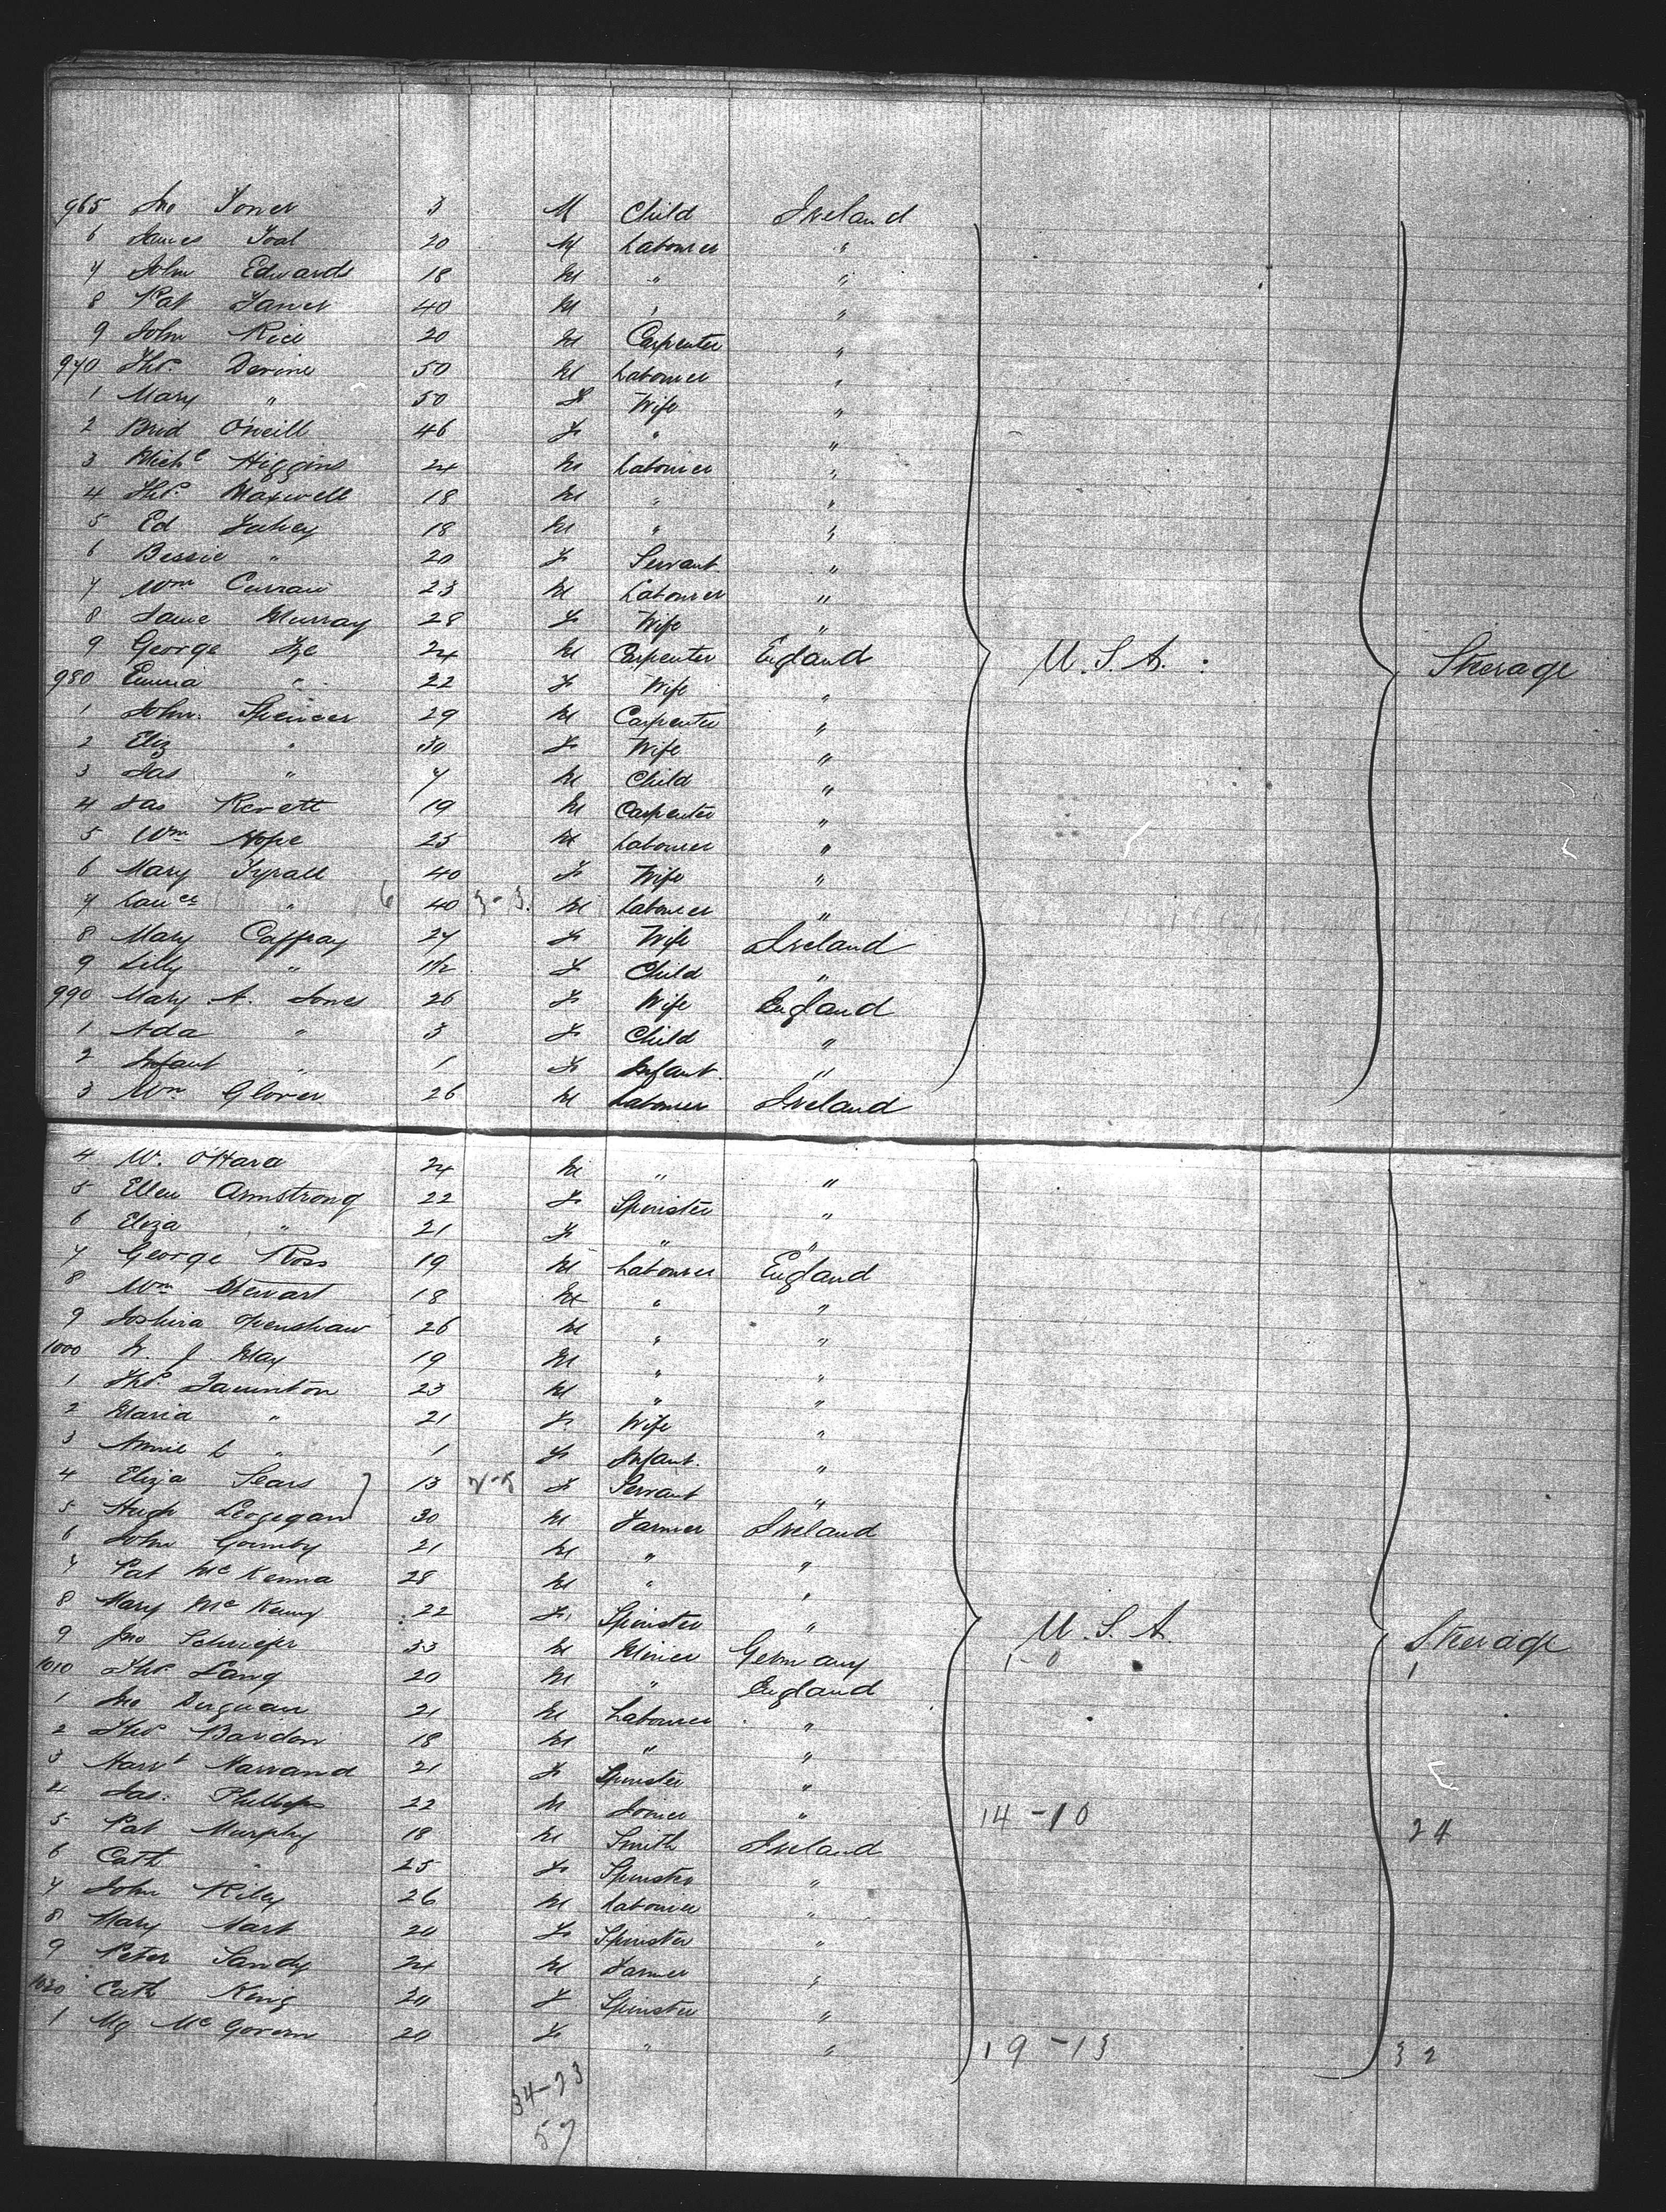 965 Jno Toner 3 M Child Ireland
6 James Toal 20 M Labourer "
7 John Edwards 18 M " "
8 Pat Toner 40 M " "
9 John Rice 20 M Carpenter "
970 Thos. Devine 50 M Labourer "
1 Mary " 50 F Wife "
2 Brid O'Neill 46 F " "
3 Michl Higgins 24 M Labourer "
4 Thos. Maxwell 18 M " "
5 Ed Fahey 18 M " "
6 Bessie " 20 F Servant "
7 Wm Curran 23 M Labourer "
8 Jane Murray 28 F Wife "
9 George 24 M Carpenter England U.S.A. Steerage
980 Emma " 22 F Wife "
1 John Spencer 29 M Carpenter "
2 Eliz " 30 F Wife "
3 Jas " 7 M Child "
4 Jas 19 M Carpenter "
5 Wm Hope 25 M Labourer "
6 Mary Tyrall 40 F Wife "
7 Lauce " 6 40 3-3. M Labourer "
8 Mary Caffray 27 F Wife Ireland
9 Lilly " 1 1/2 F Child "
990 Mary A. Jones 26 F Wife England
1 Ada " 3 F Child "
2 Infant " 1 F Infant "
3 Wm Glover 26 M Labourer Ireland
4 W. O'Hara 24 M " "
5 Ellen Armstrong 22 F Spinster "
6 Eliza " 21 F " "
7 George Ross 19 M Labourer England
8 Wm Stewart 18 M " "
9 Joshua Openshaw 26 M " "
1000 J May 19 M " "
1 Thos. Taunton 23 M " "
2 Maria " 21 F Wife "
3 Annie L " 1 F Infant "
4 Eliza Sears 13 F Servant "
5 Hugh Geogegan 30 M Farmer Ireland
6 John Gormby 21 M " "
7 Pat McKenna 28 M " "
8 Mary McKenny 22 F Spinster " U.S.A. Steerage
9 Jno Schriefer 33 M Miner Germany 1-0 1
1010 Thos Lang 20 M " England
1 Jno 21 M Labourer "
2 Thos Bardon 18 M " "
3 Harrt Narrand 21 F Spinster "
4 Jas. Phillips 22 M Joiner " 14-10 24
5 Pat Murphy 18 M Smith Ireland
6 Cath " 25 F Spinster "
7 John Riley 26 M Labourer "
8 Mary Hart 20 F Spinster "
9 Peter Sandy 24 M Farmer "
1020 Cath King 20 F Spinster "
1 Mg McGovern 20 F " " 19-13 32
34-23
57